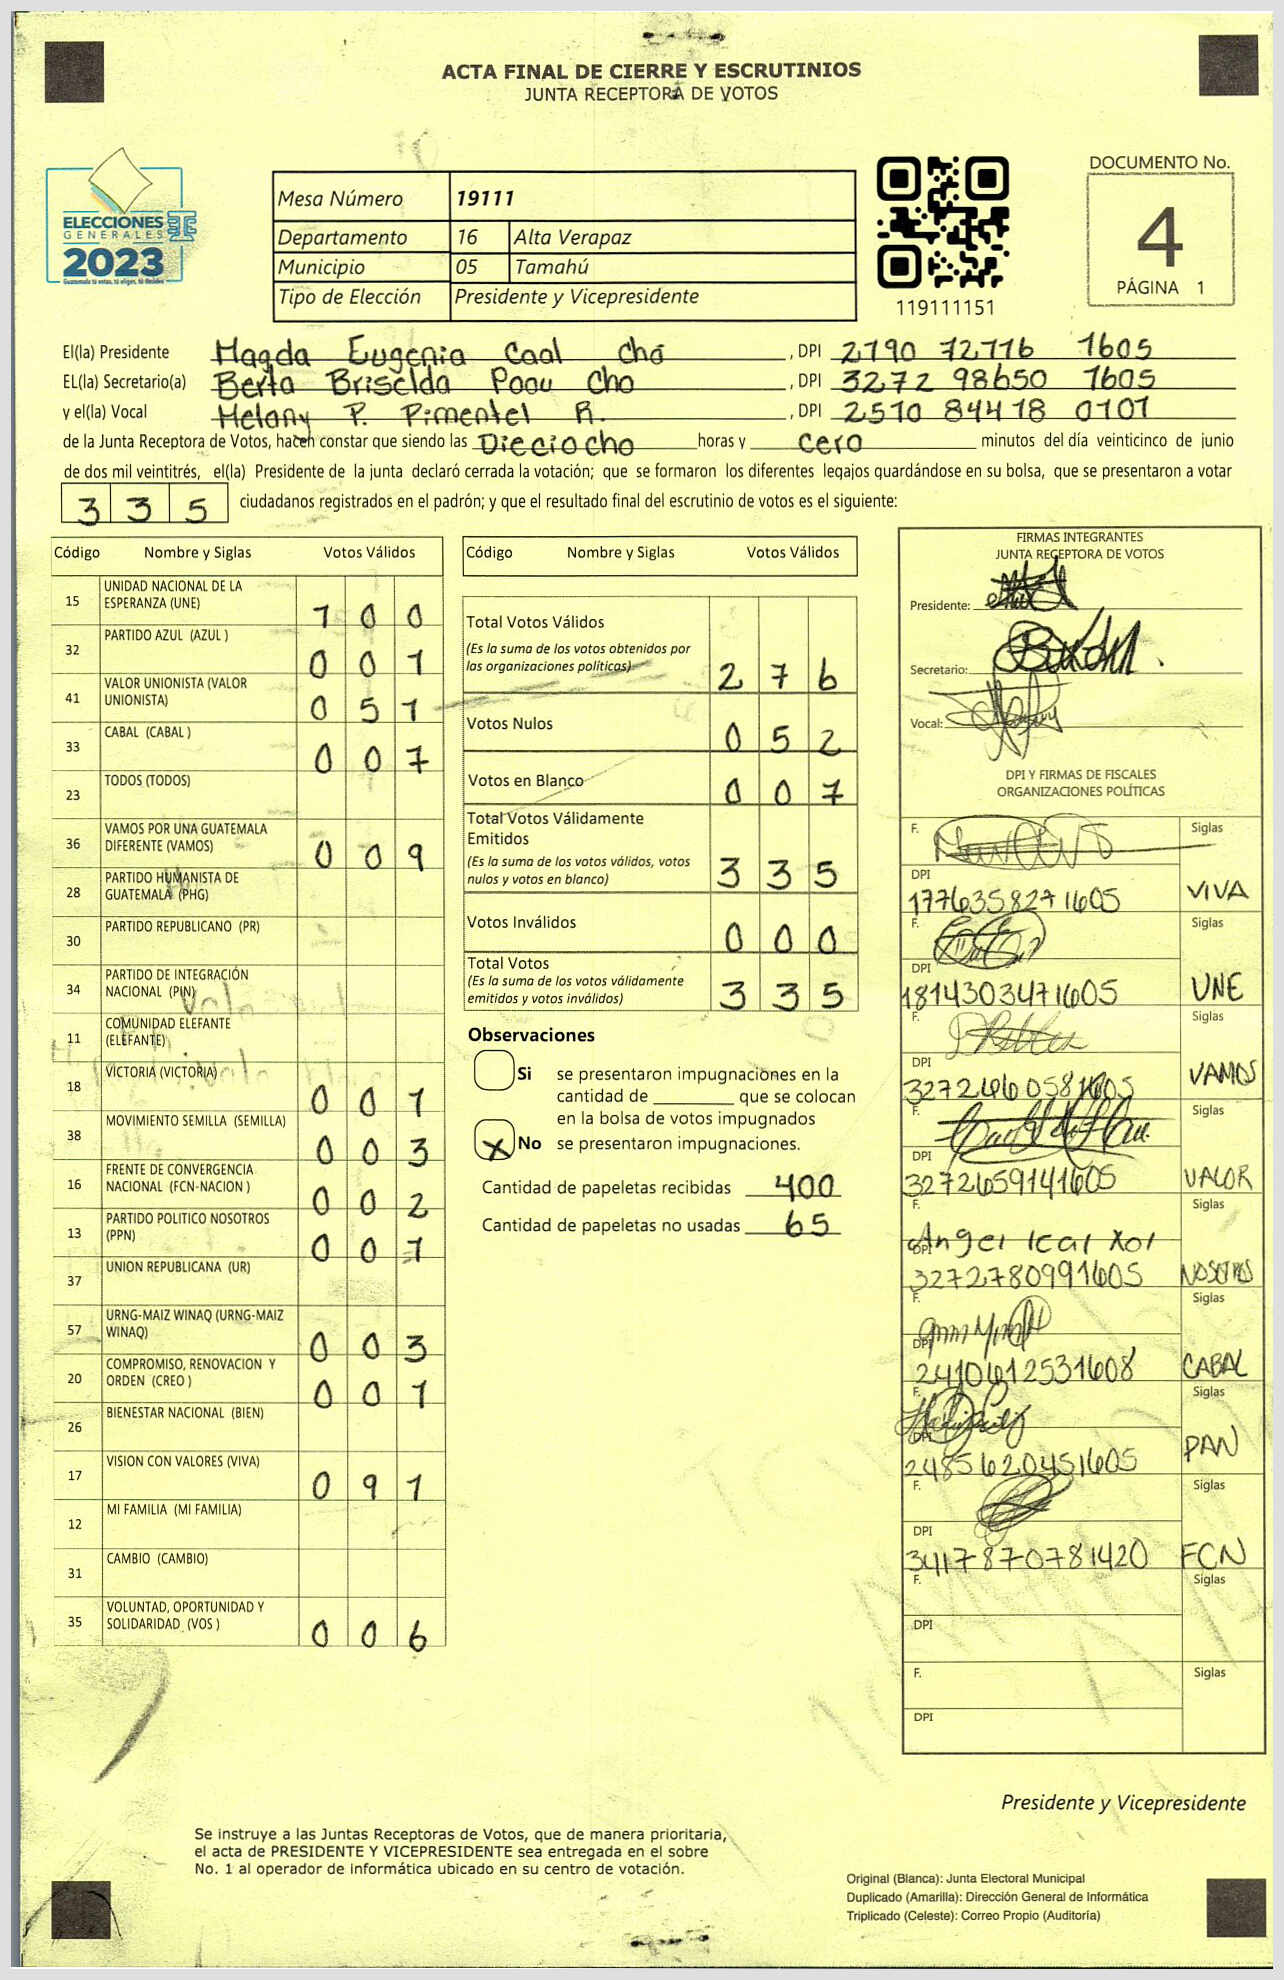 ACTA FINAL DE CIERRE Y ESCRUTINIOS
JUNTA RECEPTORA DE VOTOS
ELECCIONES
GENERALES
2023
Guatemala tú votas, tú eliges, tú decides
Mesa Número 19111
Departamento 16 Alta Verapaz
Municipio 05 Tamahú
Tipo de Elección Presidente y Vicepresidente
119111151
DOCUMENTO No.
4
PÁGINA 1
El(la) Presidente Magda Eugenia Caal Chó , DPI 2790 72776 1605
EL(la) Secretario(a) Berta Briselda Poou Cho , DPI 3272 98650 1605
y el(la) Vocal Melany P. Pimentel R. , DPI 2510 84418 0101
de la Junta Receptora de Votos, hacen constar que siendo las Dieciocho horas y cero minutos del día veinticinco de junio
de dos mil veintitrés, el(la) Presidente de la junta declaró cerrada la votación; que se formaron los diferentes legajos guardándose en su bolsa, que se presentaron a votar
335 ciudadanos registrados en el padrón; y que el resultado final del escrutinio de votos es el siguiente:
Código Nombre y Siglas Votos Válidos
15 UNIDAD NACIONAL DE LA ESPERANZA (UNE) 100
32 PARTIDO AZUL (AZUL ) 001
41 VALOR UNIONISTA (VALOR UNIONISTA) 051
33 CABAL (CABAL ) 007
23 TODOS (TODOS)
36 VAMOS POR UNA GUATEMALA DIFERENTE (VAMOS) 009
28 PARTIDO HUMANISTA DE GUATEMALA (PHG)
30 PARTIDO REPUBLICANO (PR)
34 PARTIDO DE INTEGRACIÓN NACIONAL (PIN)
11 COMUNIDAD ELEFANTE (ELEFANTE)
18 VICTORIA (VICTORIA) 001
38 MOVIMIENTO SEMILLA (SEMILLA) 003
16 FRENTE DE CONVERGENCIA NACIONAL (FCN-NACION ) 002
13 PARTIDO POLITICO NOSOTROS (PPN) 001
37 UNION REPUBLICANA (UR)
57 URNG-MAIZ WINAQ (URNG-MAIZ WINAQ) 003
20 COMPROMISO, RENOVACION Y ORDEN (CREO ) 001
26 BIENESTAR NACIONAL (BIEN)
17 VISION CON VALORES (VIVA) 091
12 MI FAMILIA (MI FAMILIA)
31 CAMBIO (CAMBIO)
35 VOLUNTAD, OPORTUNIDAD Y SOLIDARIDAD (VOS ) 006
Código Nombre y Siglas Votos Válidos
Total Votos Válidos
(Es la suma de los votos obtenidos por
las organizaciones políticas) 276
Votos Nulos 052
Votos en Blanco 007
Total Votos Válidamente
Emitidos
(Es la suma de los votos válidos, votos
nulos y votos en blanco) 335
Votos Inválidos 000
Total Votos
(Es la suma de los votos válidamente
emitidos y votos inválidos) 335
Observaciones
Si se presentaron impugnaciones en la
cantidad de ________ que se colocan
en la bolsa de votos impugnados
X No se presentaron impugnaciones.
Cantidad de papeletas recibidas 400
Cantidad de papeletas no usadas 65
FIRMAS INTEGRANTES
JUNTA RECEPTORA DE VOTOS
Presidente:
Secretario:
Vocal:
DPI Y FIRMAS DE FISCALES
ORGANIZACIONES POLÍTICAS
F. Siglas
DPI
1776358271605 VIVA
F. Siglas
DPI
1814303471605 UNE
F. Siglas
DPI
3272460581605 VAMOS
F. Siglas
DPI
3272659141605 VALOR
F. Siglas
Angel Ical Xol
DPI
3272780991605 NOSOTROS
F. Siglas
DPI
2410612531608 CABAL
F. Siglas
DPI
2485620451605 PAN
F. Siglas
DPI
3417870781420 FCN
F. Siglas
DPI
F. Siglas
DPI
Presidente y Vicepresidente
Se instruye a las Juntas Receptoras de Votos, que de manera prioritaria,
el acta de PRESIDENTE Y VICEPRESIDENTE sea entregada en el sobre
No. 1 al operador de informática ubicado en su centro de votación.
Original (Blanca): Junta Electoral Municipal
Duplicado (Amarilla): Dirección General de Informática
Triplicado (Celeste): Correo Propio (Auditoría)